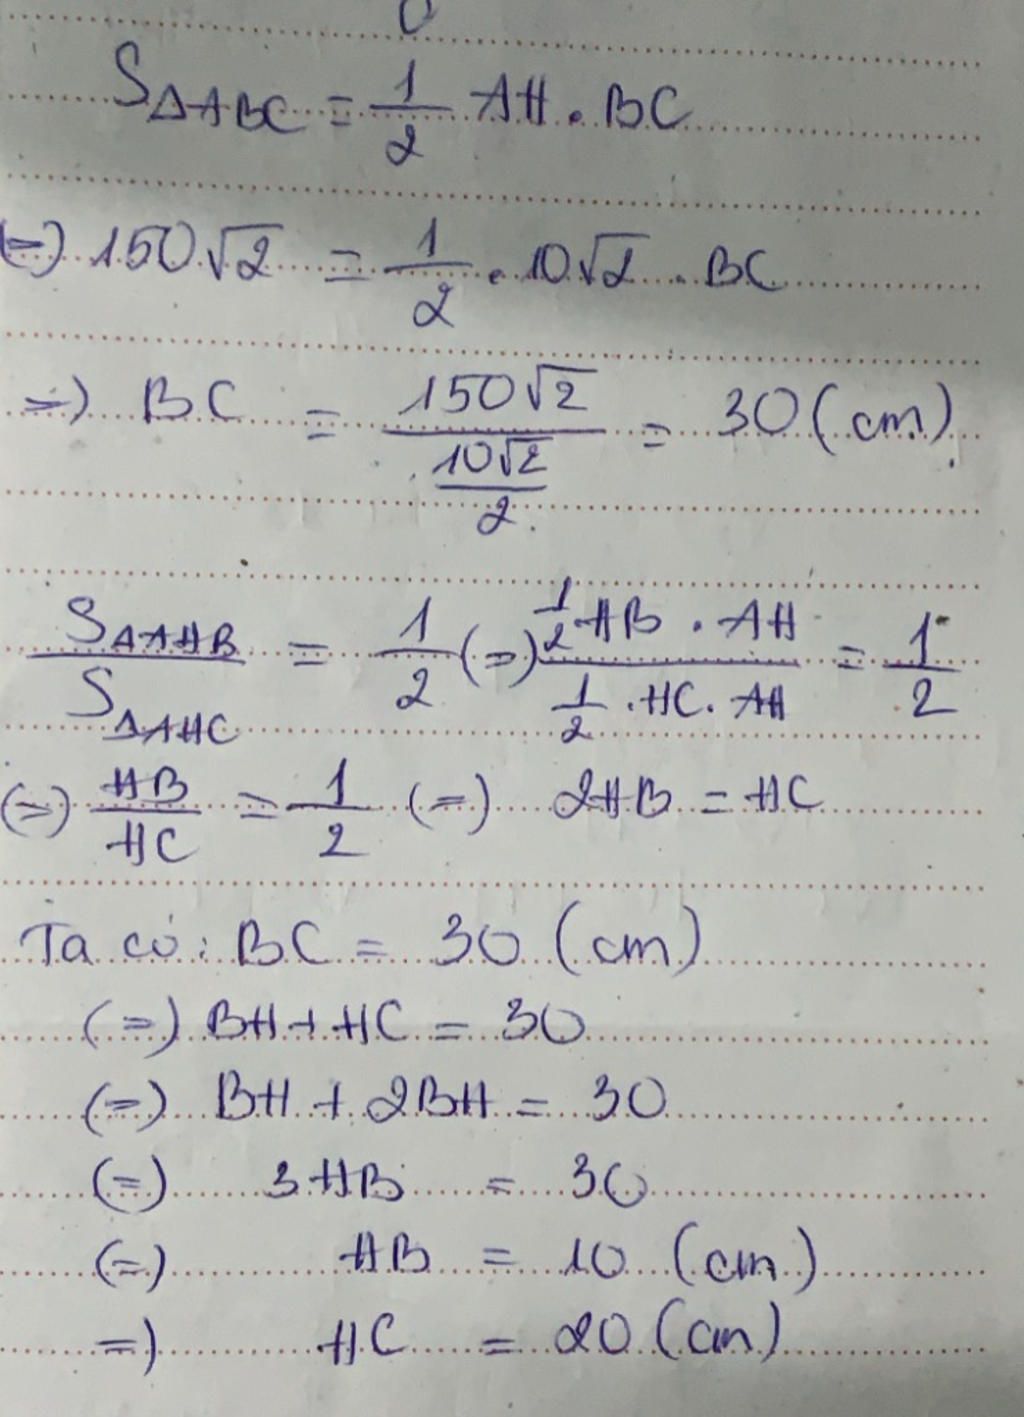 S△ABC = 1/2 AH . BC
(=) 150√2 = 1/2 . 10√2 . BC
=) BC = 150√2 / (10√2 / 2) = 30 (cm).
S△AHB / S△AHC = 1/2 (=) (1/2 HB . AH) / (1/2 . HC . AH) = 1/2
(=) HB/HC = 1/2 (=) 2HB = HC
Ta có: BC = 30 (cm)
(=) BH + HC = 30
(=) BH + 2BH = 30
(=) 3HB = 30
(=) HB = 10 (cm)
=) HC = 20 (cm)